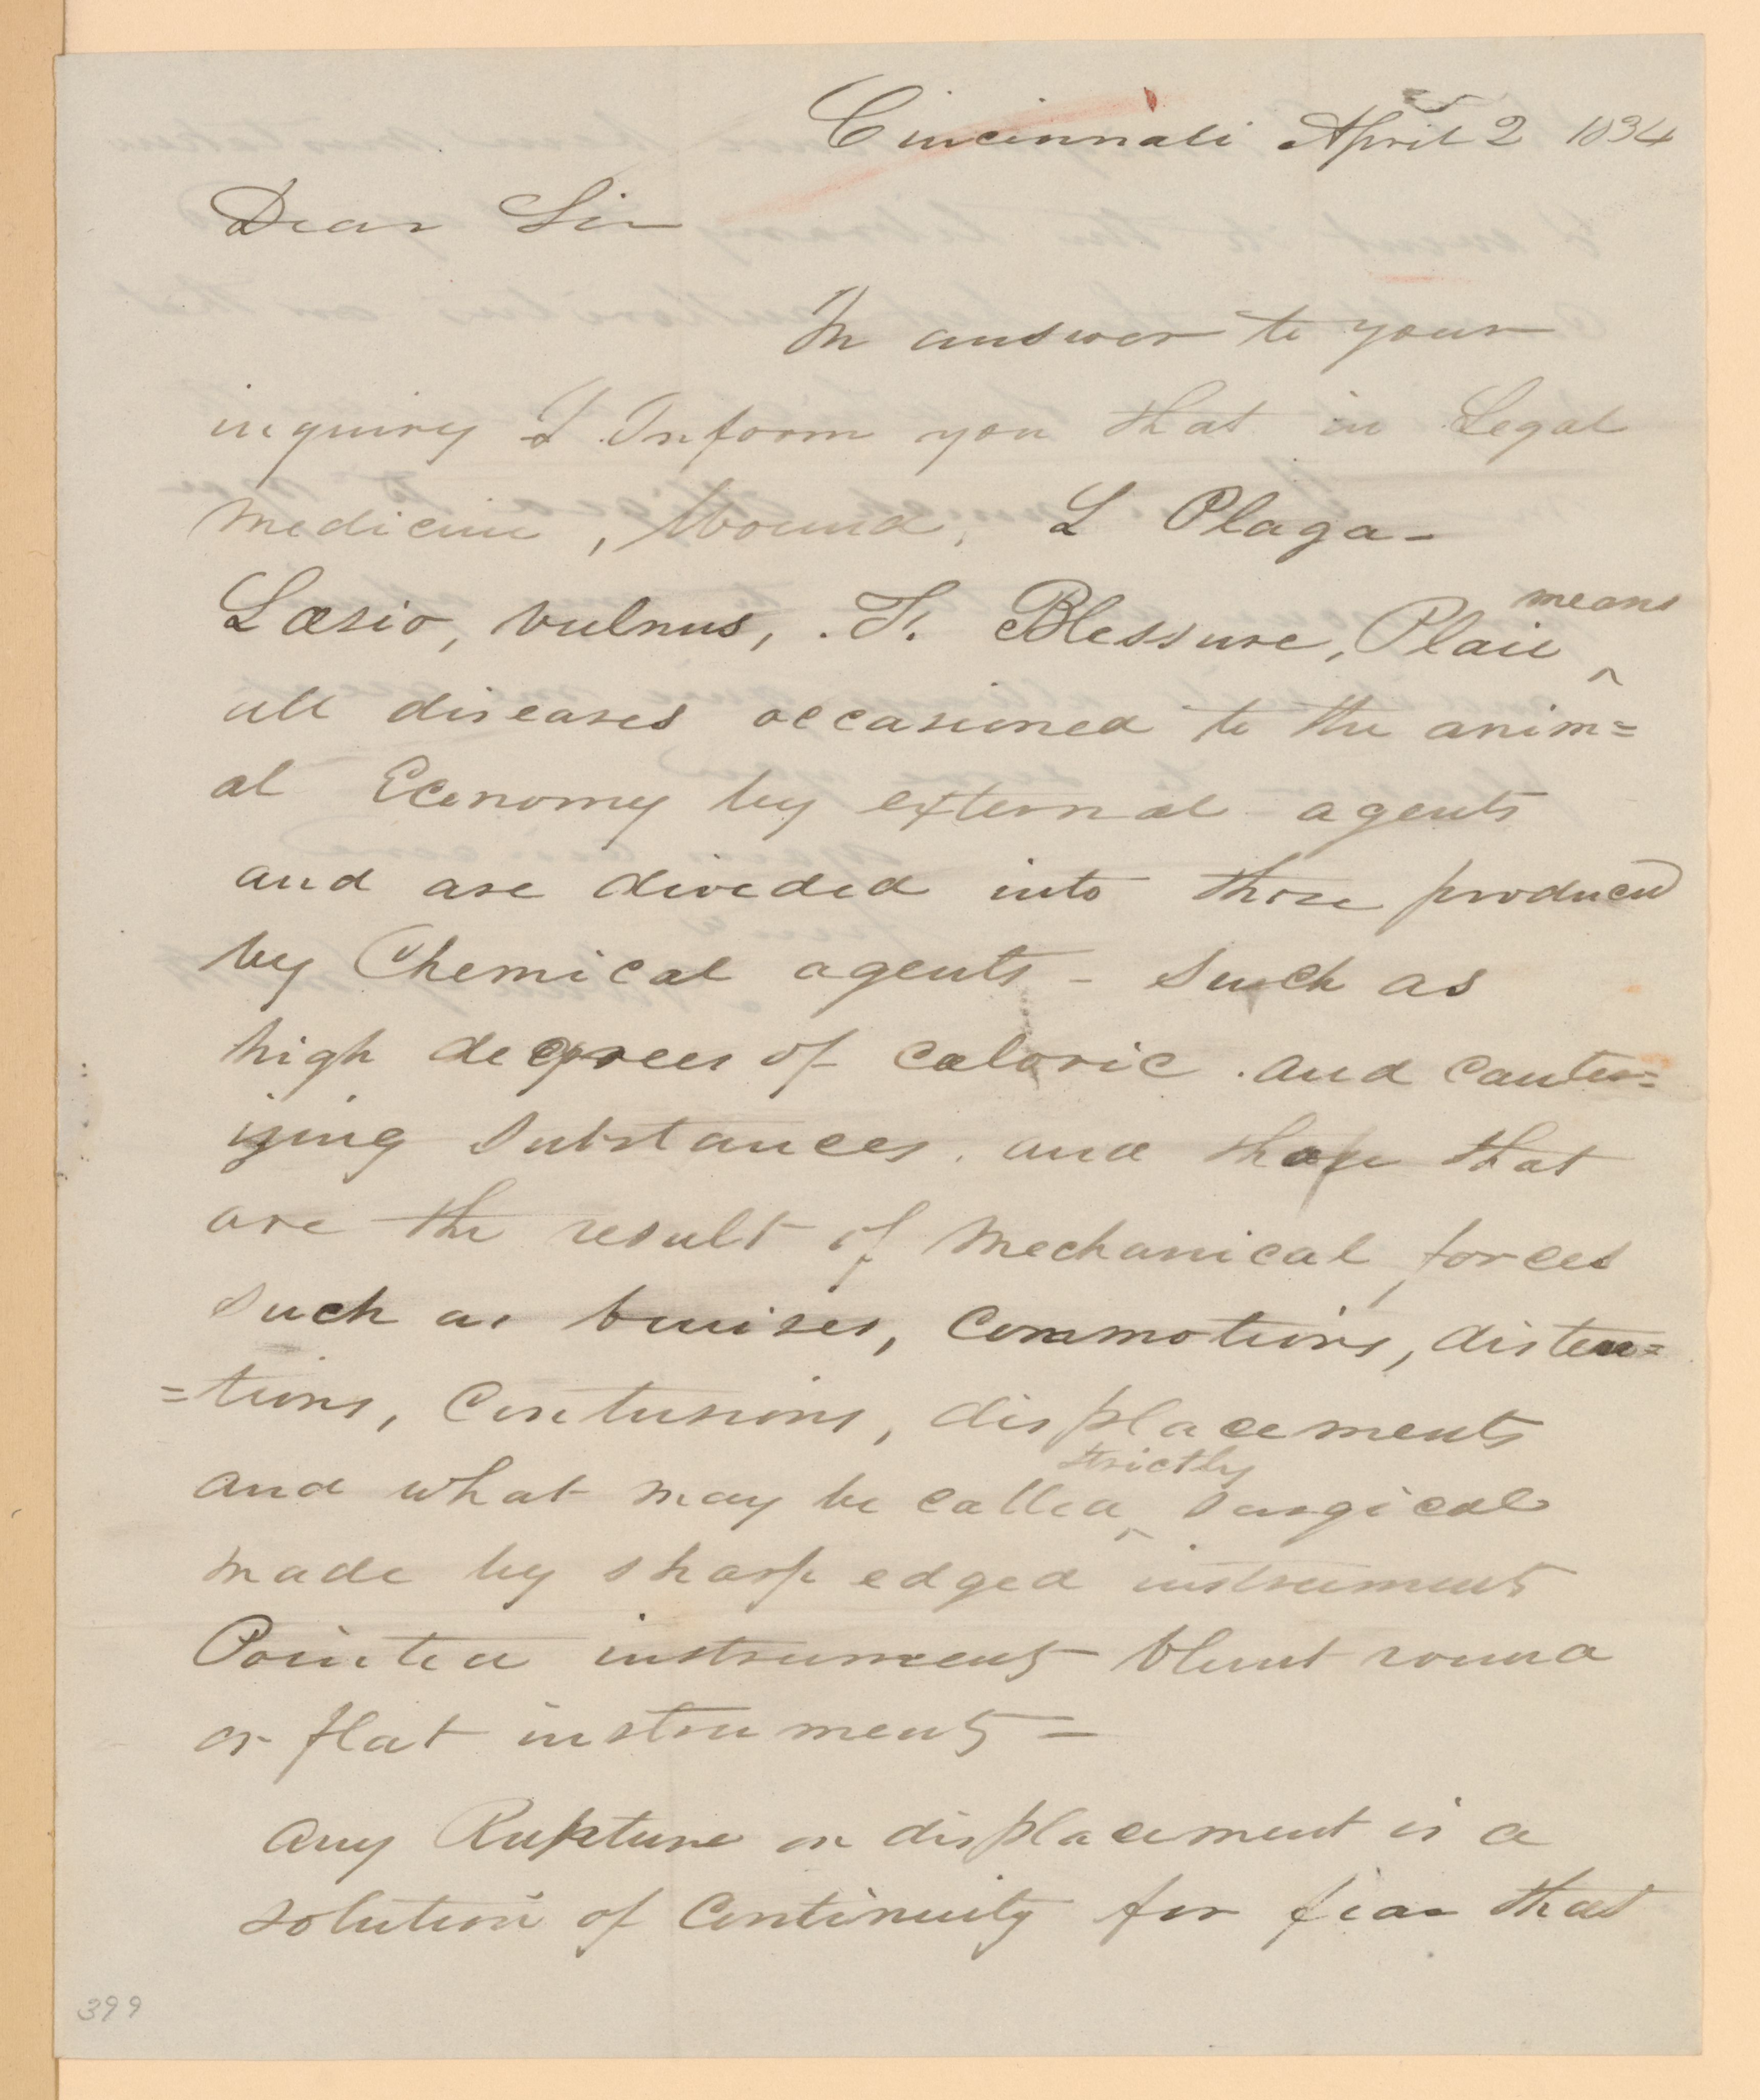 Cincinnati April 2 1834
Dear Sir
In answer to your
inquiry I Inform you that in Legal
medicine, Wound, L Plaga -
Læsio, vulnus, . F. Blessure, Plaie ^means
all diseases occasioned to the anim=
al Economy by external agents
and are divided into those produced
by Chemical agents - such as
high degrees of caloric . and cauter=
izing substances . and those that
are the result of mechanical forces
such as bruises, Commotions, disten=
=tions, Contusions, displacements
and what may be called ^strictly surgical
made by sharp edged instruments
Pointed instruments blunt round
or flat instruments =
Any Rupture or displacement is a
solution of Continuity for fear that
399